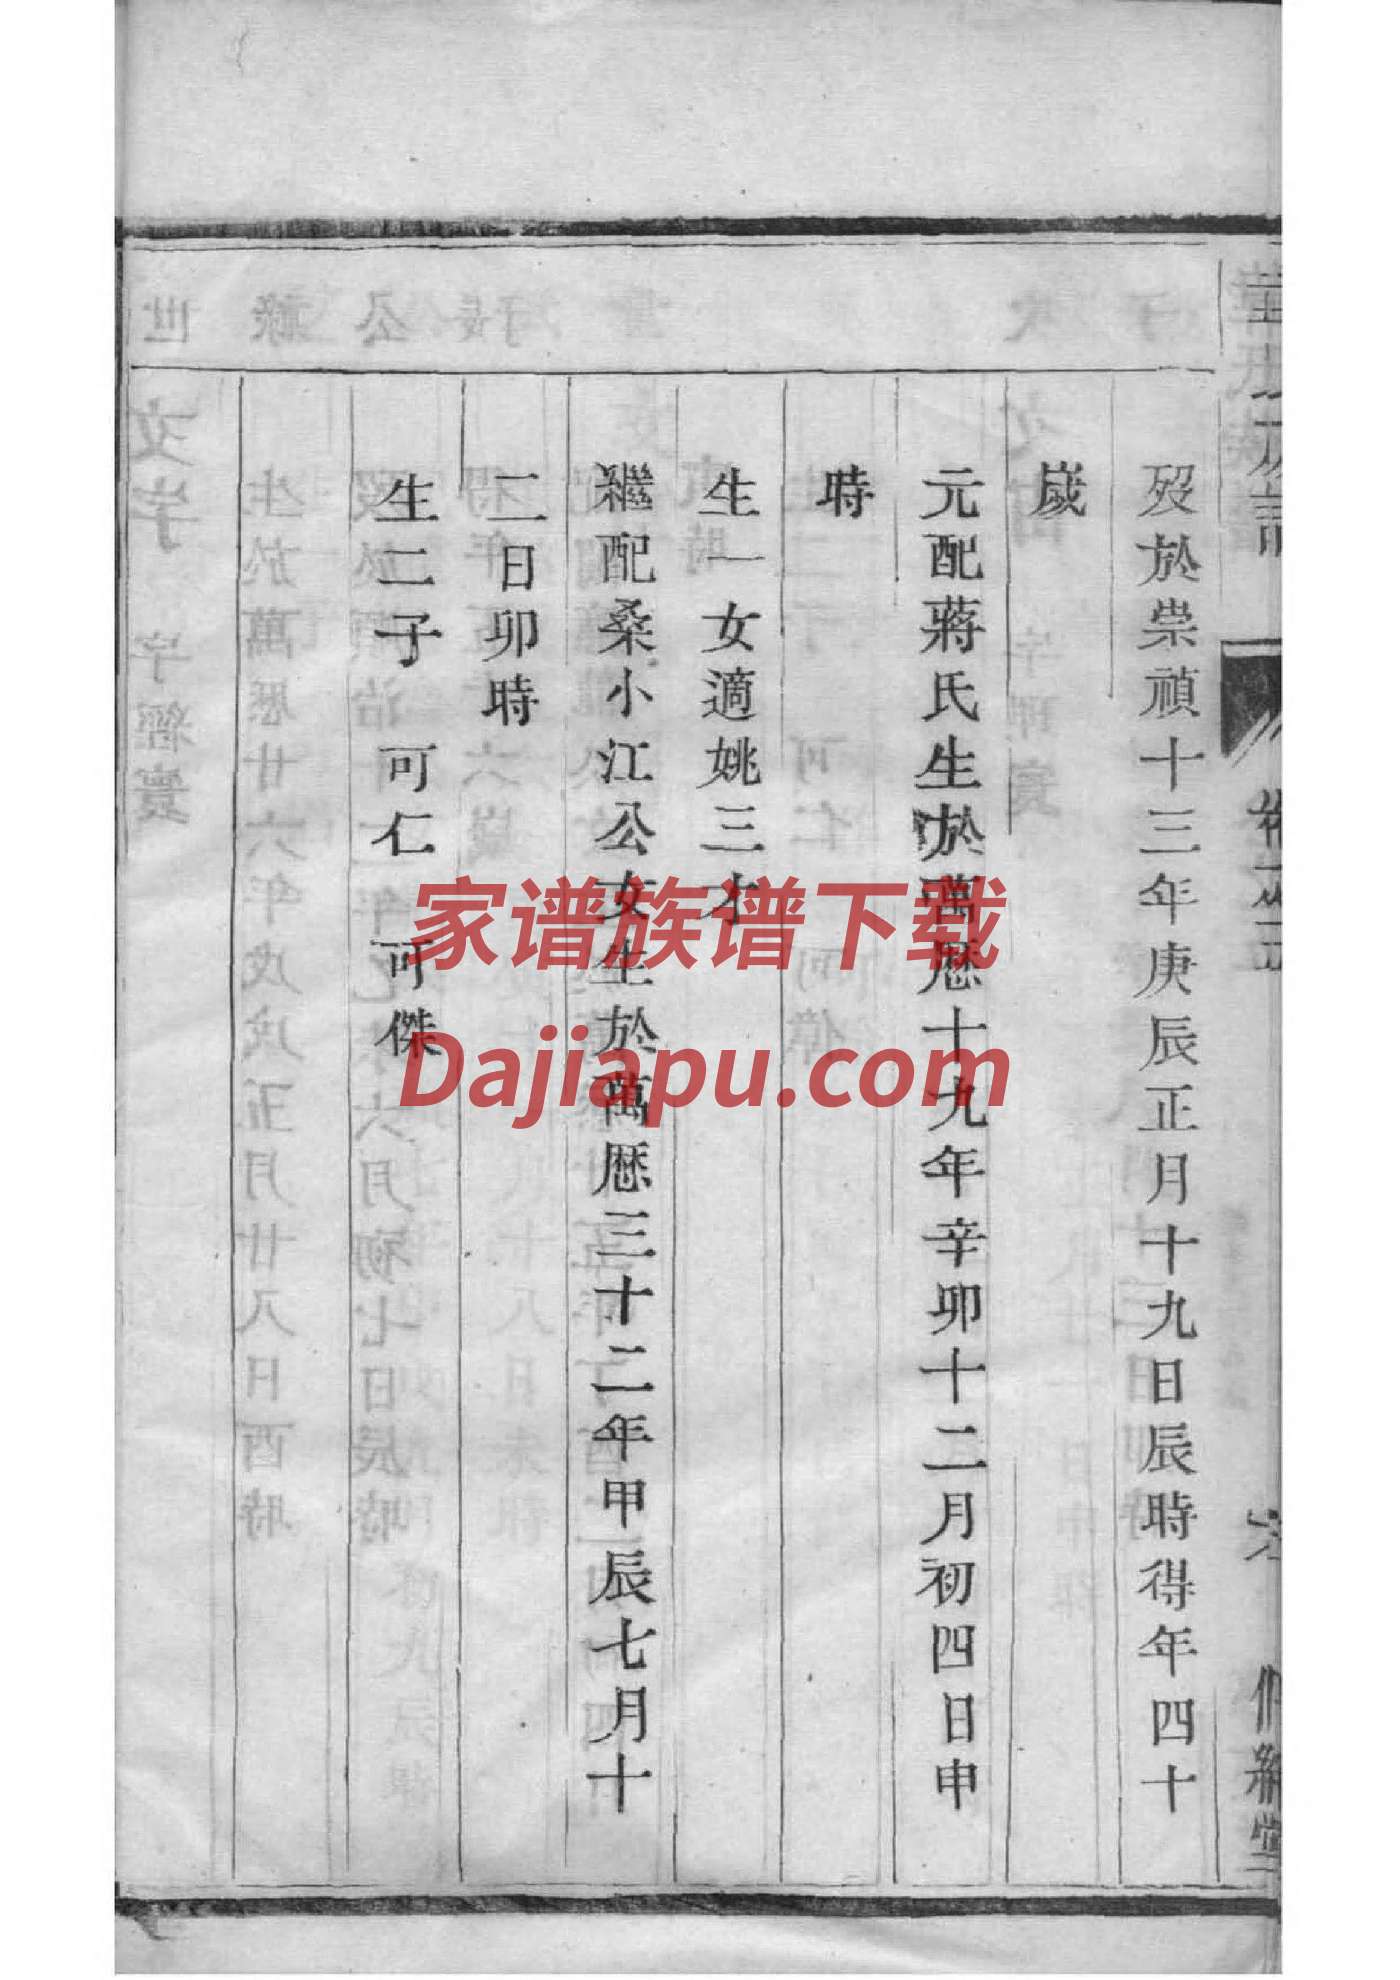 歿於崇禎十三年庚辰正月十九日辰時得年四十
歲
元配蔣氏生於萬厯十九年辛卯十二月初四日申
時
生一女適姚三才
繼配桑小江公女生於萬厯三十二年甲辰七月十
二日卯時
生二子 可仁 可傑
家谱族谱下载
Dajiapu.com